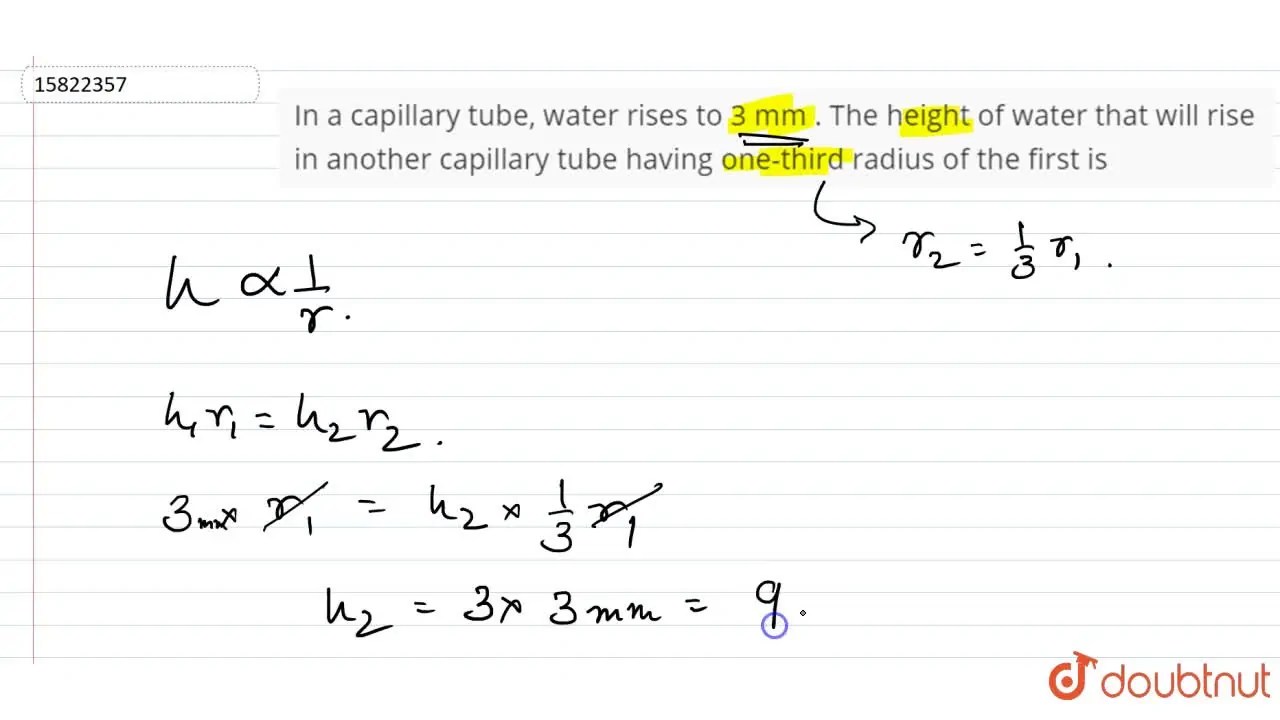 15822357
In a capillary tube, water rises to 3 mm . The height of water that will rise
in another capillary tube having one-third radius of the first is
r₂ = 1/3 r₁ .
h ∝ 1/r .
h₁ r₁ = h₂ r₂ .
3 mm × r₁ = h₂ × 1/3 r₁
h₂ = 3 × 3 mm = 9
doubtnut